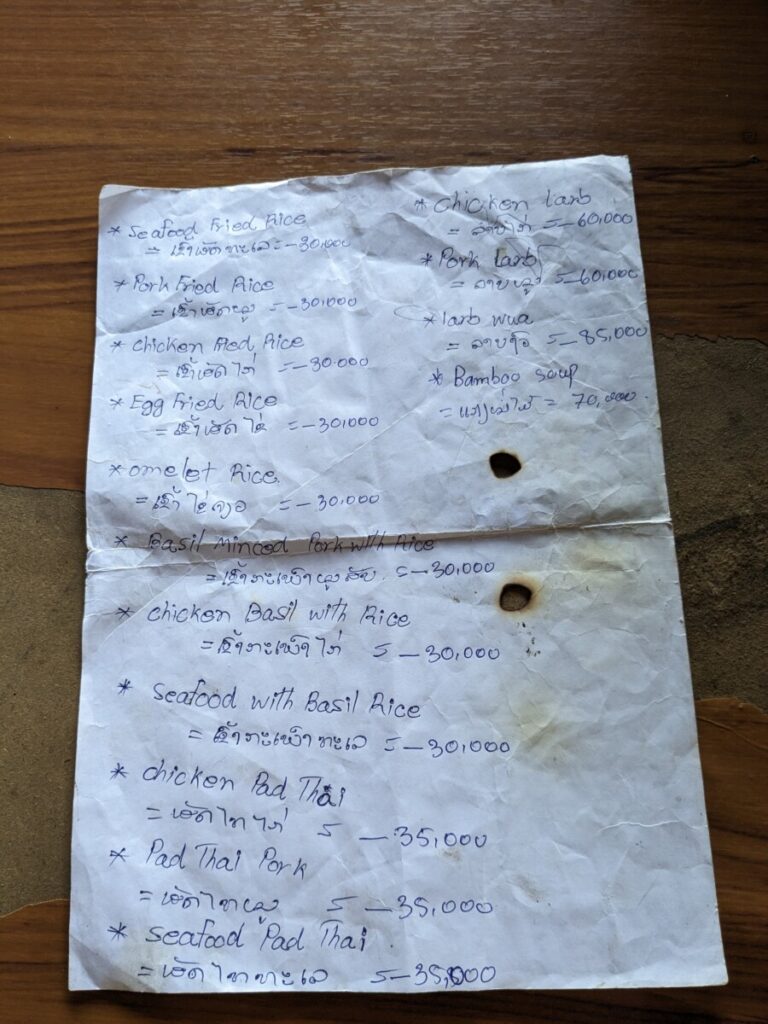 * Seafood Fried Rice
= ເຂົ້າຜັດທະເລ =-30,000
* Pork Fried Rice
= ເຂົ້າຜັດໝູ =-30,000
* chicken Fied Rice
= ເຂົ້າຜັດໄກ່ =-30.000
* Egg Fried Rice
= ເຂົ້າຜັດໄຂ່ =-30,000
* omelet Rice.
= ເຂົ້າໄຂ່ຈຽວ =-30,000
* Basil minced Pork with Rice
= ເຂົ້າກະເພົາໝູສັບ. =-30,000
* chicken Basil with Rice
= ເຂົ້າກະເພົາໄກ່ =-30,000
* Seafood with Basil Rice
= ເຂົ້າກະເພົາທະເລ =-30,000
* chicken Pad Thai
= ຜັດໄທໄກ່ =-35,000
* Pad Thai Pork
= ຜັດໄທໝູ =-35,000
* seafood Pad Thai.
= ຜັດໄທທະເລ =-35,000
* chicken larb
= ລາບໄກ່ =-60,000
* Pork larb
= ລາບໝູ =-60,000
* larb wua
= ລາບງົວ =-85,000
* Bamboo soup
= ແກງໜໍ່ໄມ້ = 70,000.